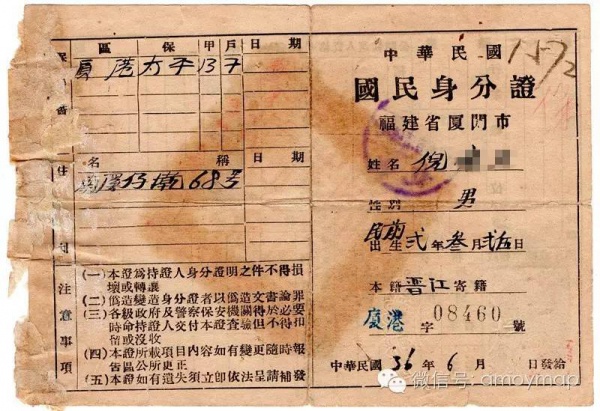 區 保 甲 戶 日 期
厦港 太平 13 7
住
名 稱 日 期
68号
注意事項
(一)本證爲持證人身分證明之件不得損
壞或轉讓
(二)僞造變造身分證者以僞造文書論罪
(三)各級政府及警察保安機關得於必要
時命持證人交付本證查驗但不得扣
留或沒收
(四)本證所載項目內容如有變更隨時報
告區公所更正
(五)本證如有遺失須立卽依法呈請補發
中華民國
國民身分證
福建省厦門市
姓名 倪
性別 男
民前
出生弍年叁月弍五日
本籍 晋江 寄籍
厦港 字 08460 號
中華民國 36 年 6 月 日發給
微信号: ampymap